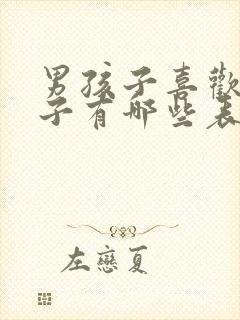 男孩子喜歡
子有哪些表
左戀夏